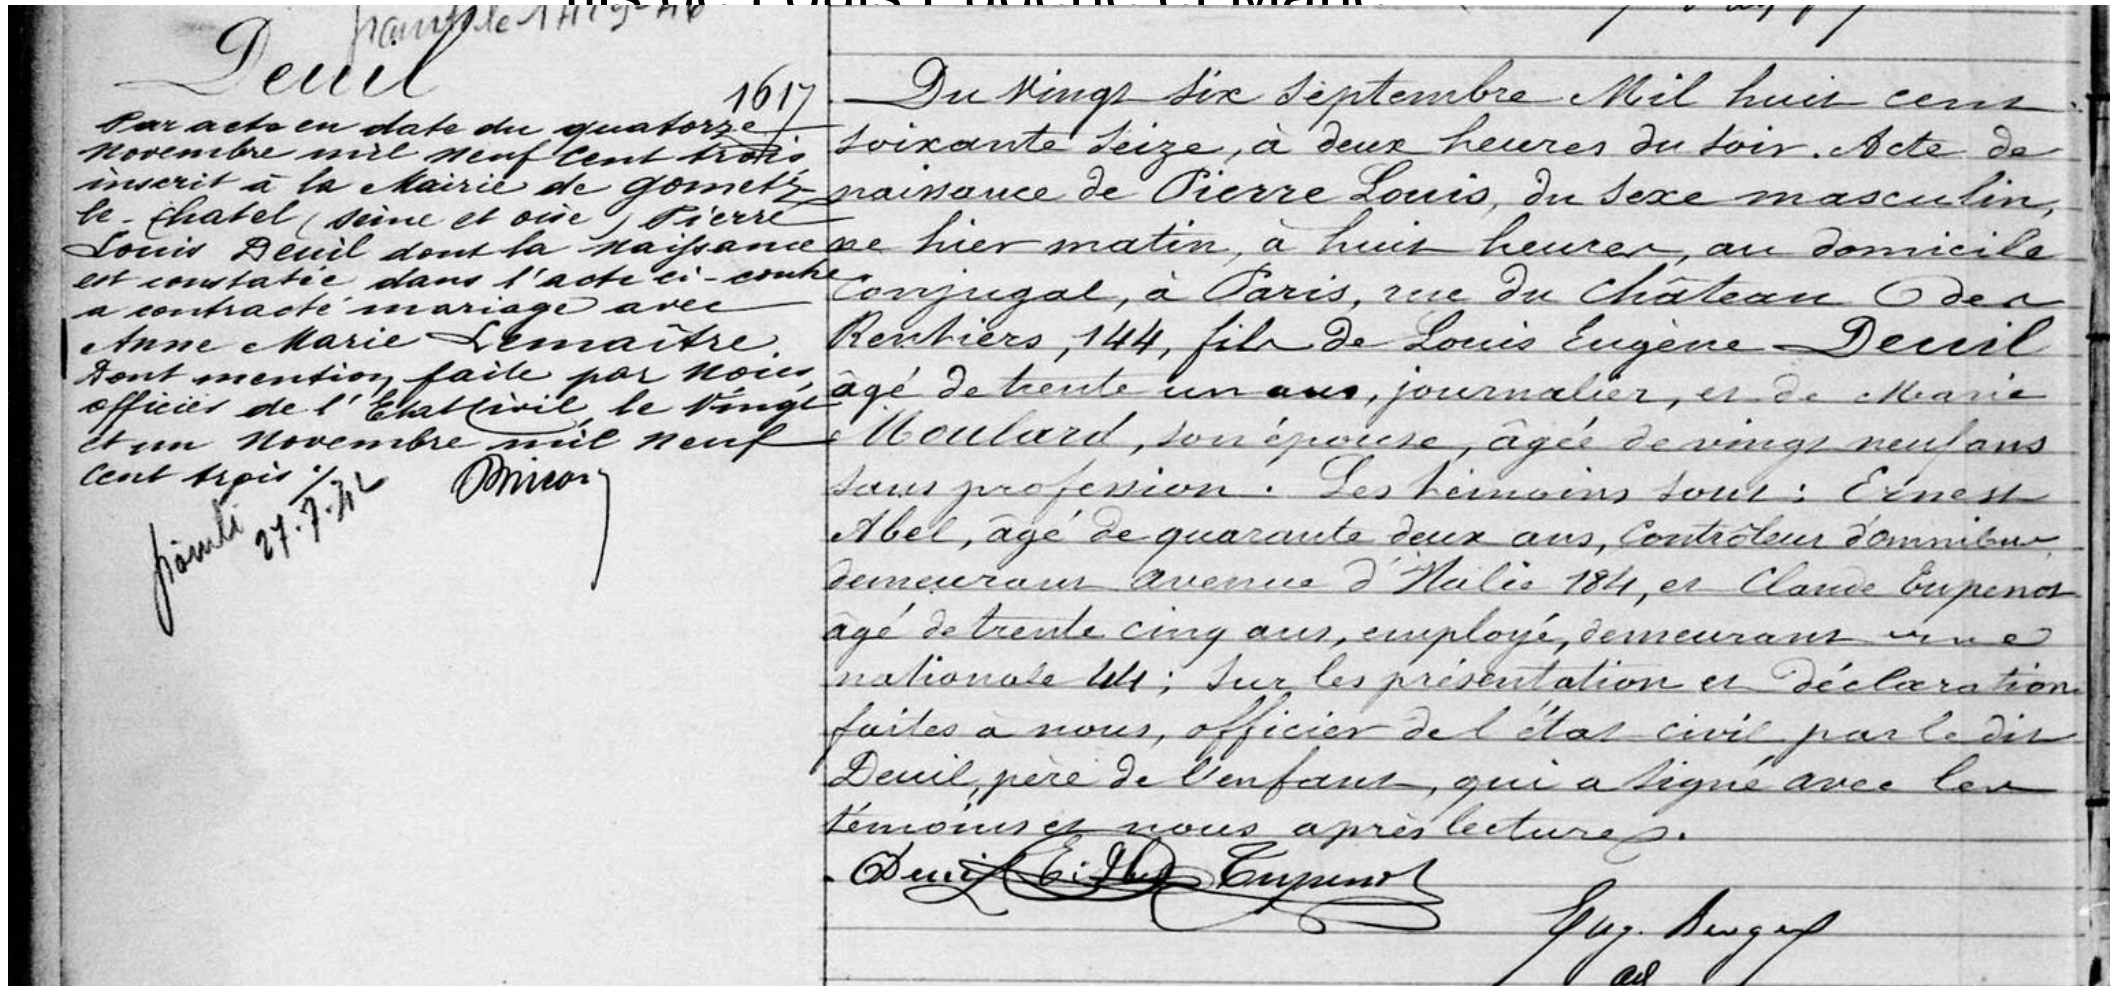 Deuil
1617
Par acte en date du quatorze
Novembre mil neuf cent trois
inscrit à la Mairie de gometz
le-chatel (seine et oise) Pierre
Louis Deuil dont la naissance
est constatée dans l'acte ci-contre
a contracté mariage avec
Anne Marie Lemaître.
Dont mention faite par Nous,
officier de l'Etat Civil, le Vingt
et un Novembre mil neuf
cent trois ./.
27.7.42
Du Vingt six Septembre Mil huit cent
soixante seize, à deux heures du soir. Acte de
naissance de Pierre Louis, du sexe masculin,
né hier matin, à huit heures, au domicile
conjugal, à Paris, rue du Château des
Rentiers, 144, fils de Louis Eugène Deuil
âgé de trente un ans, journalier, et de Marie
Moulard, son épouse, âgée de vingt neuf ans
sans profession. Les témoins sont: Ernest
Abel, âgé de quarante deux ans, Contrôleur d'omnibus
demeurant avenue d'Italie 184, et Claude Eupenot
âgé de trente cinq ans, employé, demeurant rue
nationale 44; Sur les présentation et déclaration
faites à nous, officier de l'état civil par le dit
Deuil, père de l'enfant, qui a signé avec les
témoins et nous après lecture.
Deuil